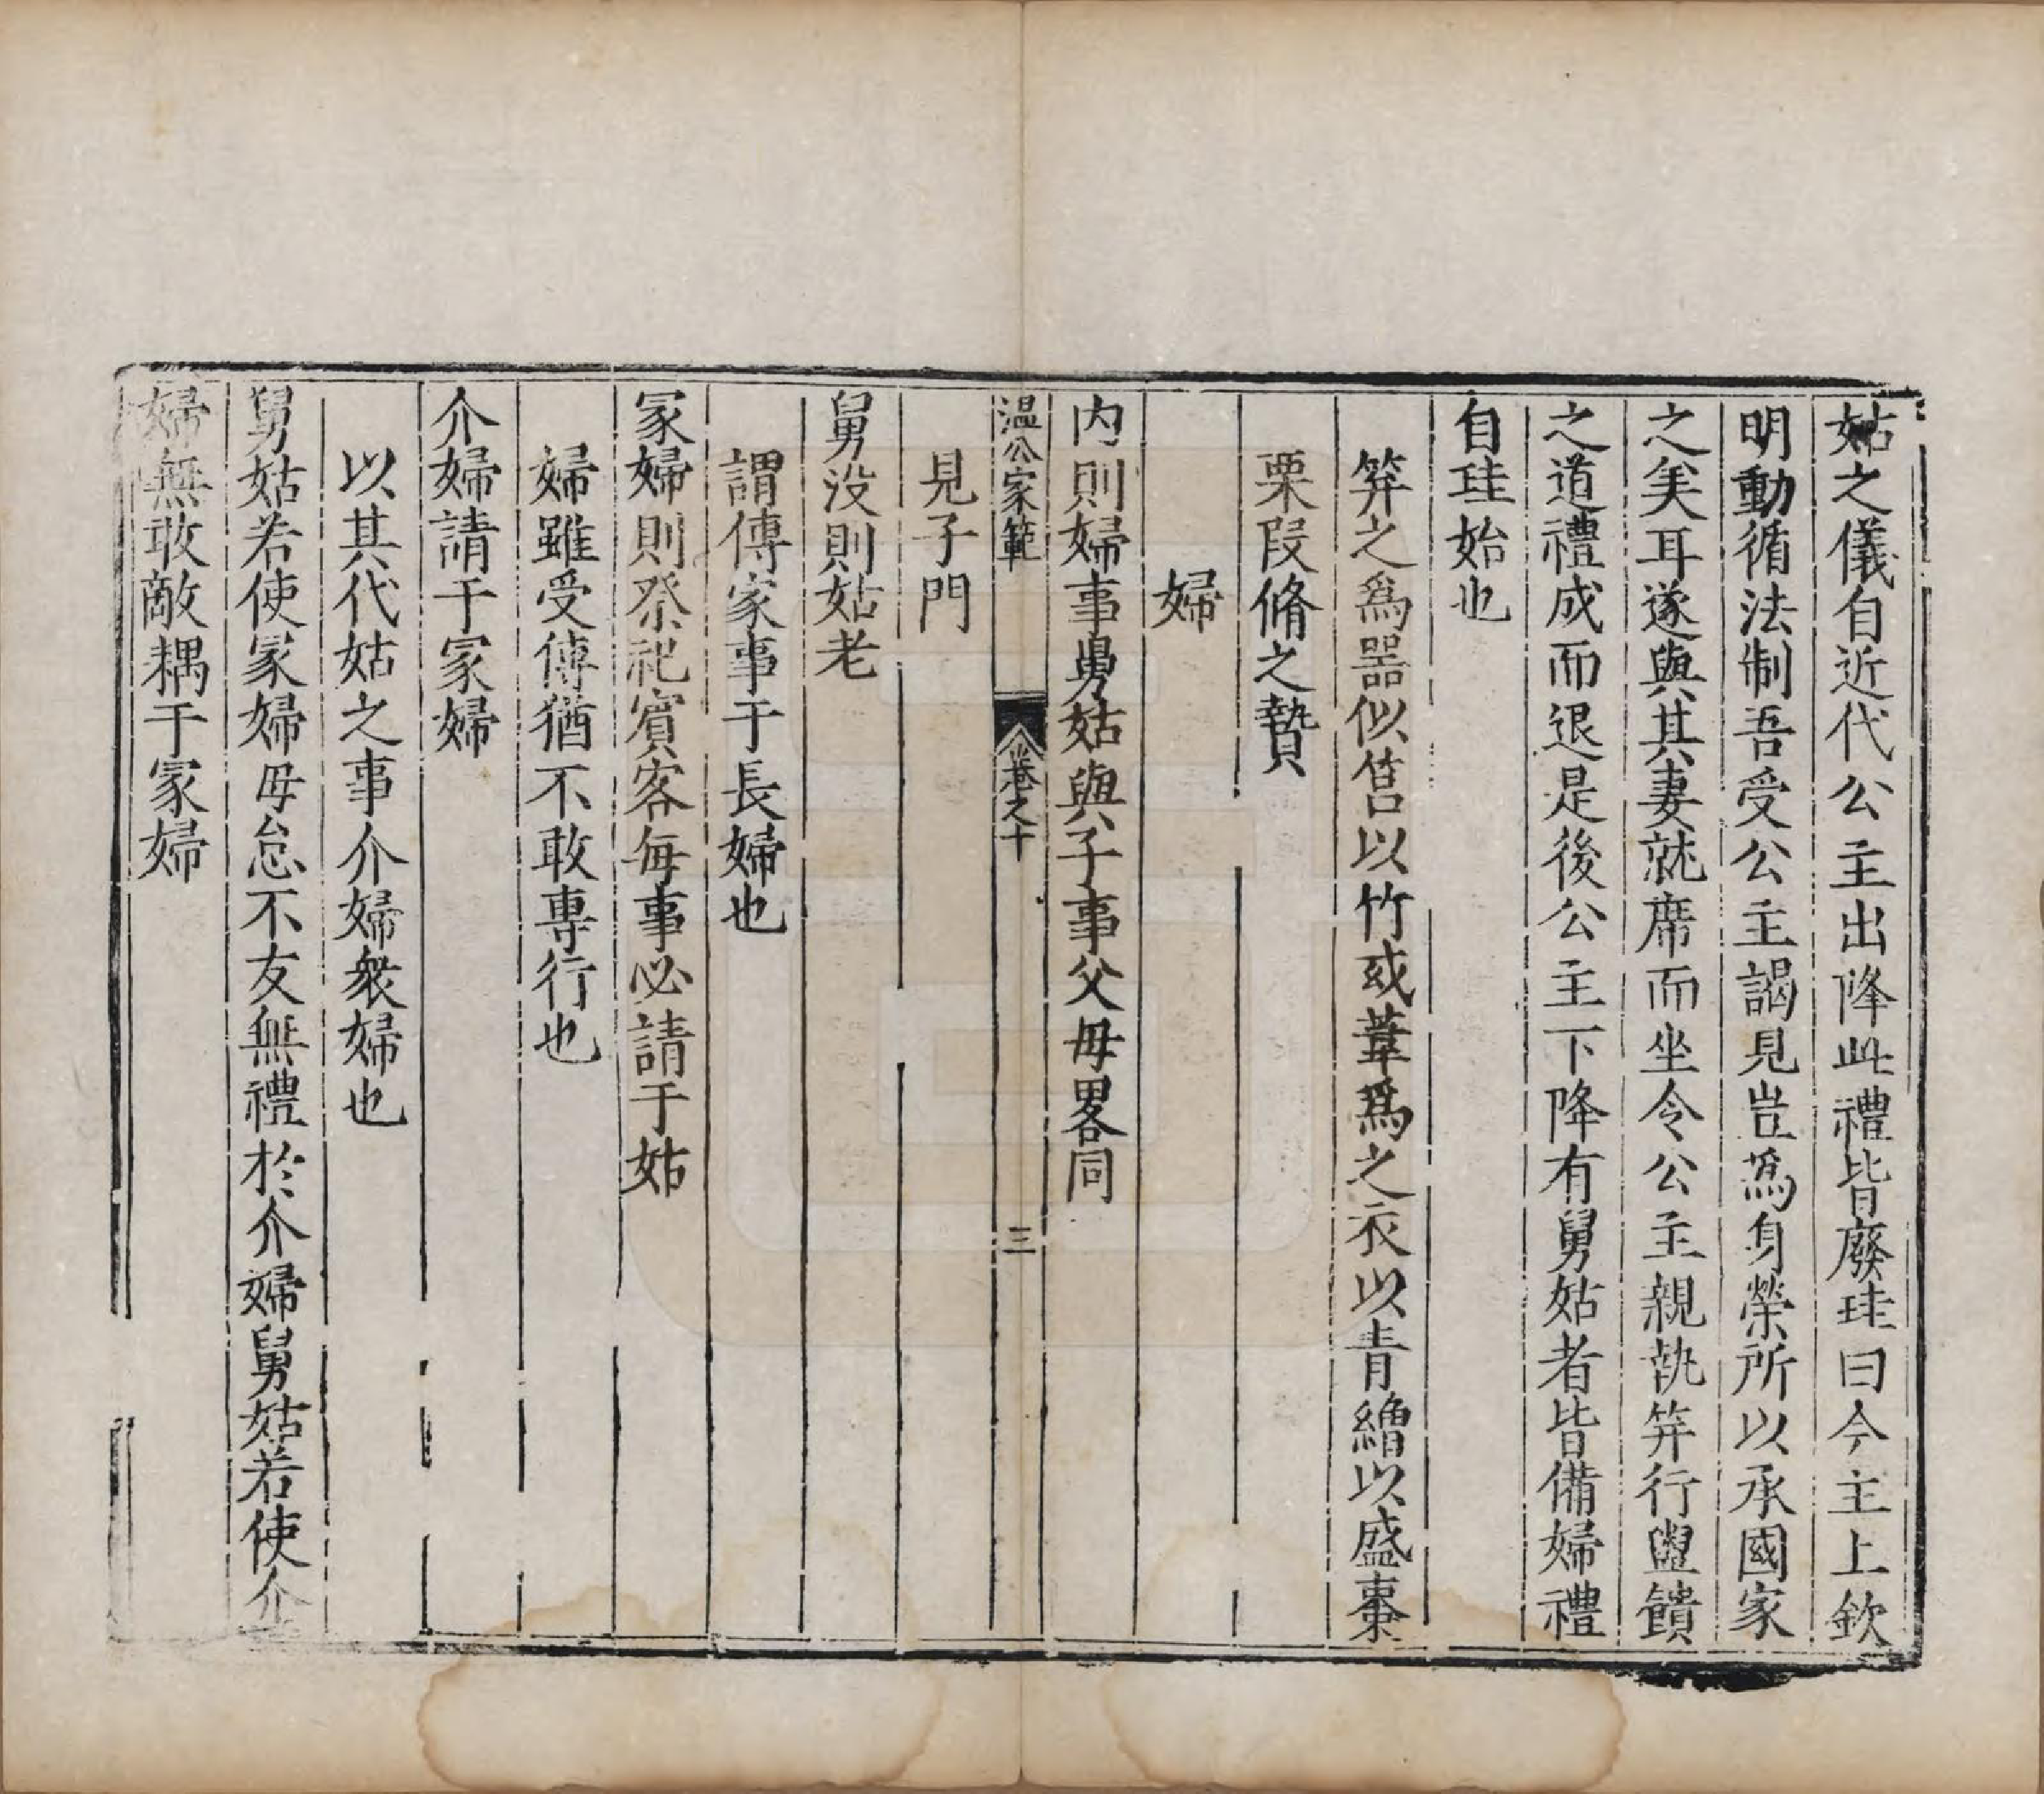 姑之儀自近代公主出降此禮皆廢珪曰今主上欽
明動循法制吾受公主謁見豈爲身榮所以承國家
之美耳遂與其妻就席而坐令公主親執笄行盥饋
之道禮成而退是後公主下降有舅姑者皆備婦禮
自珪始也
笄之爲器似筥以竹或葦爲之衣以青繒以盛棗
栗段脩之贄
婦
内則婦事舅姑與子事父母畧同
温公家範 卷之十 三
見子門
舅没則姑老
謂傳家事于長婦也
冢婦則祭祀賓客每事必請于姑
婦雖受傳猶不敢専行也
介婦請于冢婦
以其代姑之事介婦衆婦也
舅姑若使冢婦毋怠不友無禮於介婦舅姑若使介
婦無敢敵耦于冢婦